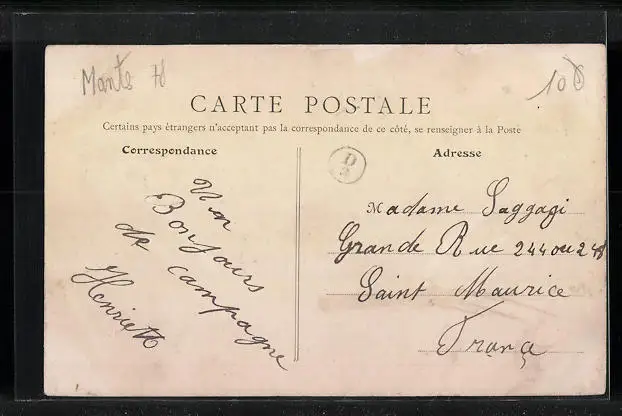 Mantes 78
108
CARTE POSTALE
Certains pays étrangers n'acceptant pas la correspondance de ce côté, se renseigner à la Poste
Correspondance
Un
Bonjours
de campagne
Henriette
D
2
Adresse
Madame Saggagi
Grande Rue 244 ou 248
Saint Maurice
França